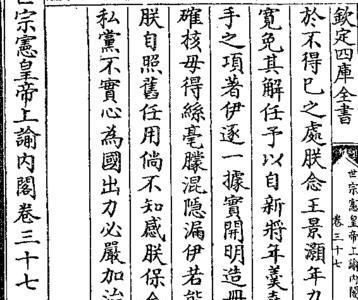 欽定四庫全書
世宗憲皇帝上諭內閣
卷三十七
於不得已之處朕念王景灝年力
寬免其解任予以自新將年羹
手之項著伊逐一據實開明造冊
確核毋得絲毫朦混隱漏伊若能
朕自照舊任用倘不知感朕保
私黨不實心為國出力必嚴加治
世宗憲皇帝上諭內閣卷三十七